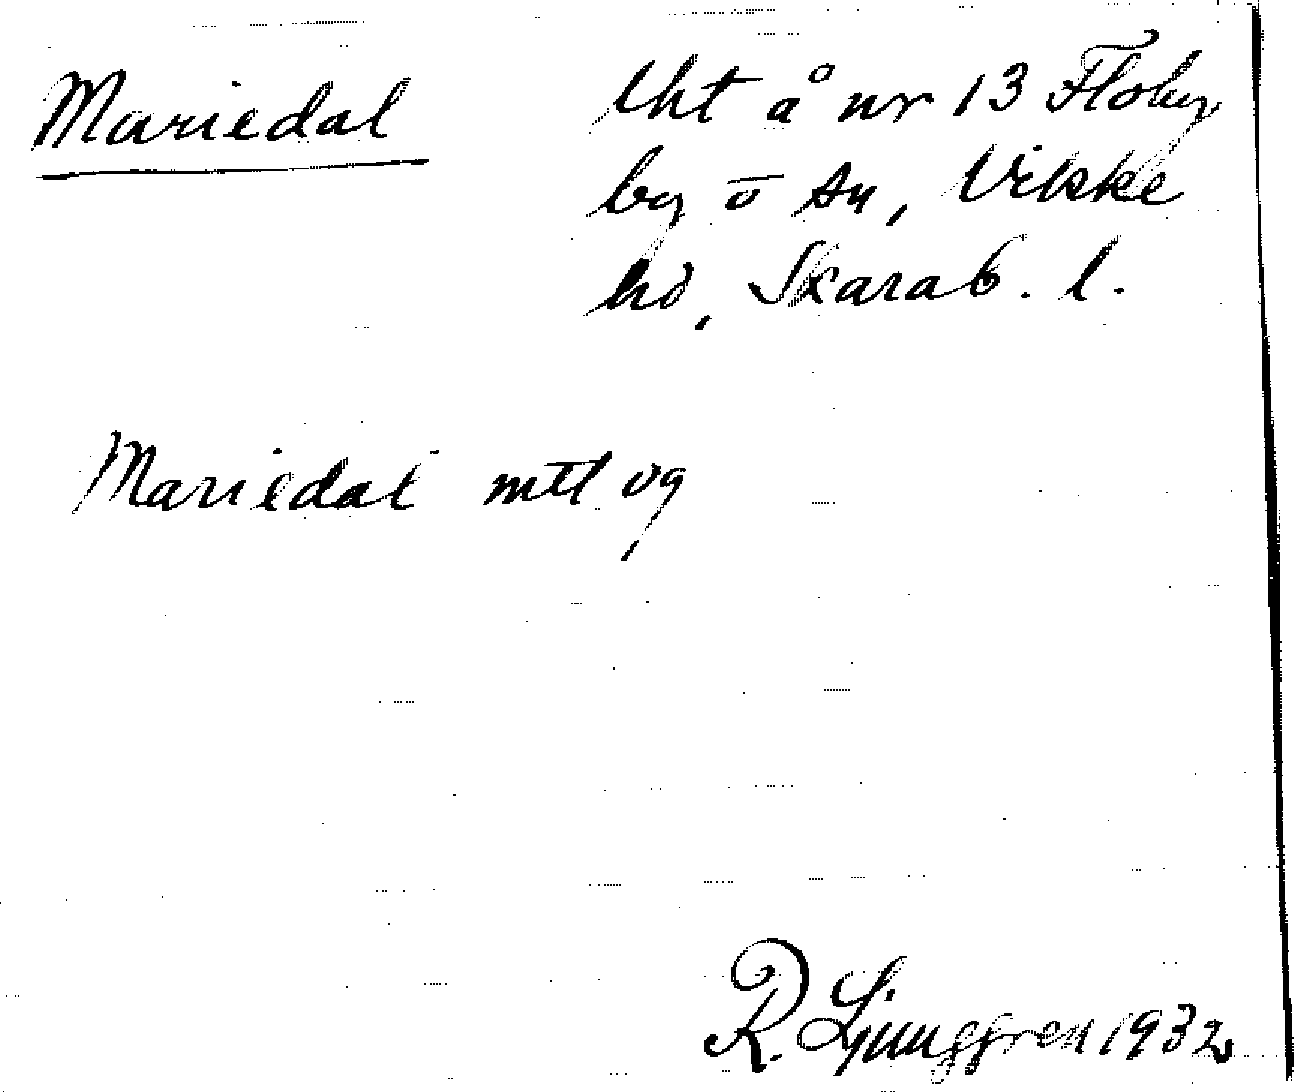 Mariedal
lht å nr 13 Floby
by o sn, Vilske
hd, Skarab. l.
Mariedal mtl og
R. Ljunggren 1932